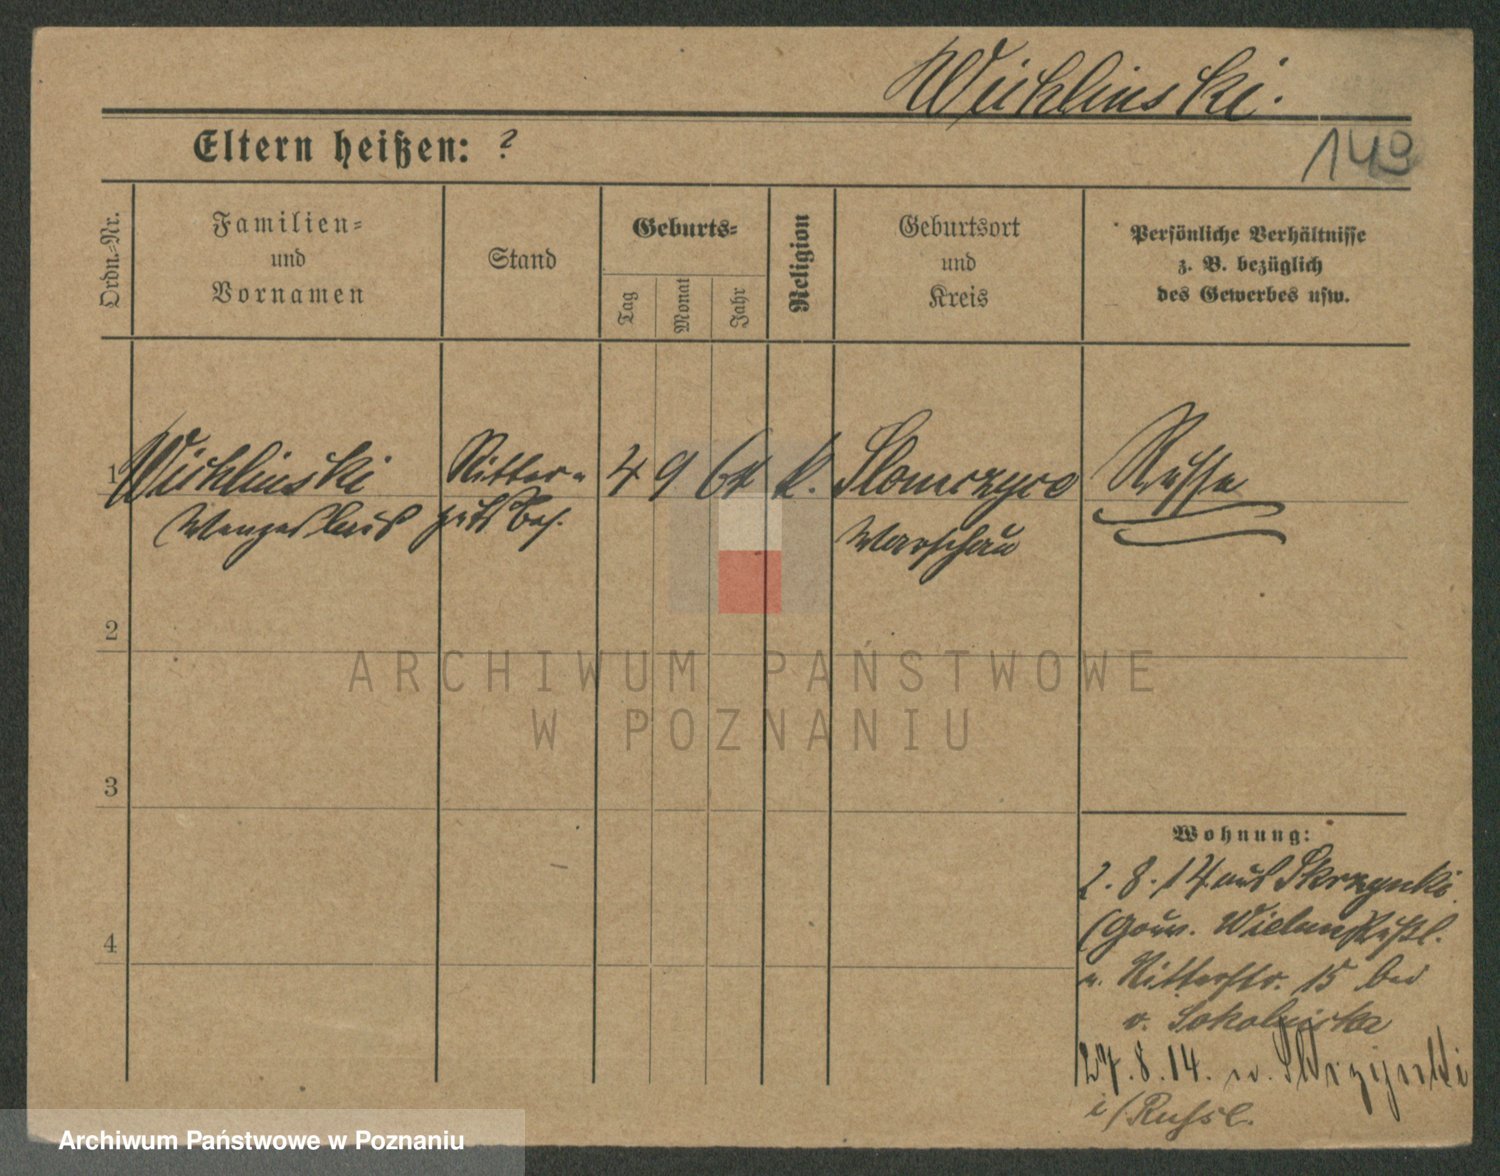 Wichlinski.
Eltern heißen: ?
149
Ordn.-Nr.
Familien-
und
Vornamen
Stand
Geburts-
Tag
Monat
Jahr
Religion
Geburtsort
und
Kreis
Persönliche Verhältnisse
z. B. bezüglich
des Gewerbes usw.
1 Wichlinski Ritter- 4 9 64 k. Slomczyce Russe
Wenzeslaus gutsbes. Warschau
2
ARCHIWUM PAŃSTWOWE
W POZNANIU
3
Wohnung:
2. 8. 14 aus Skrzynki
(Gouv. Russl.
n. Ritterstr. 15 bei
v. Sokolnicka
4
27. 8. 14. n. Skrzynki
i/Russl.
Archiwum Państwowe w Poznaniu